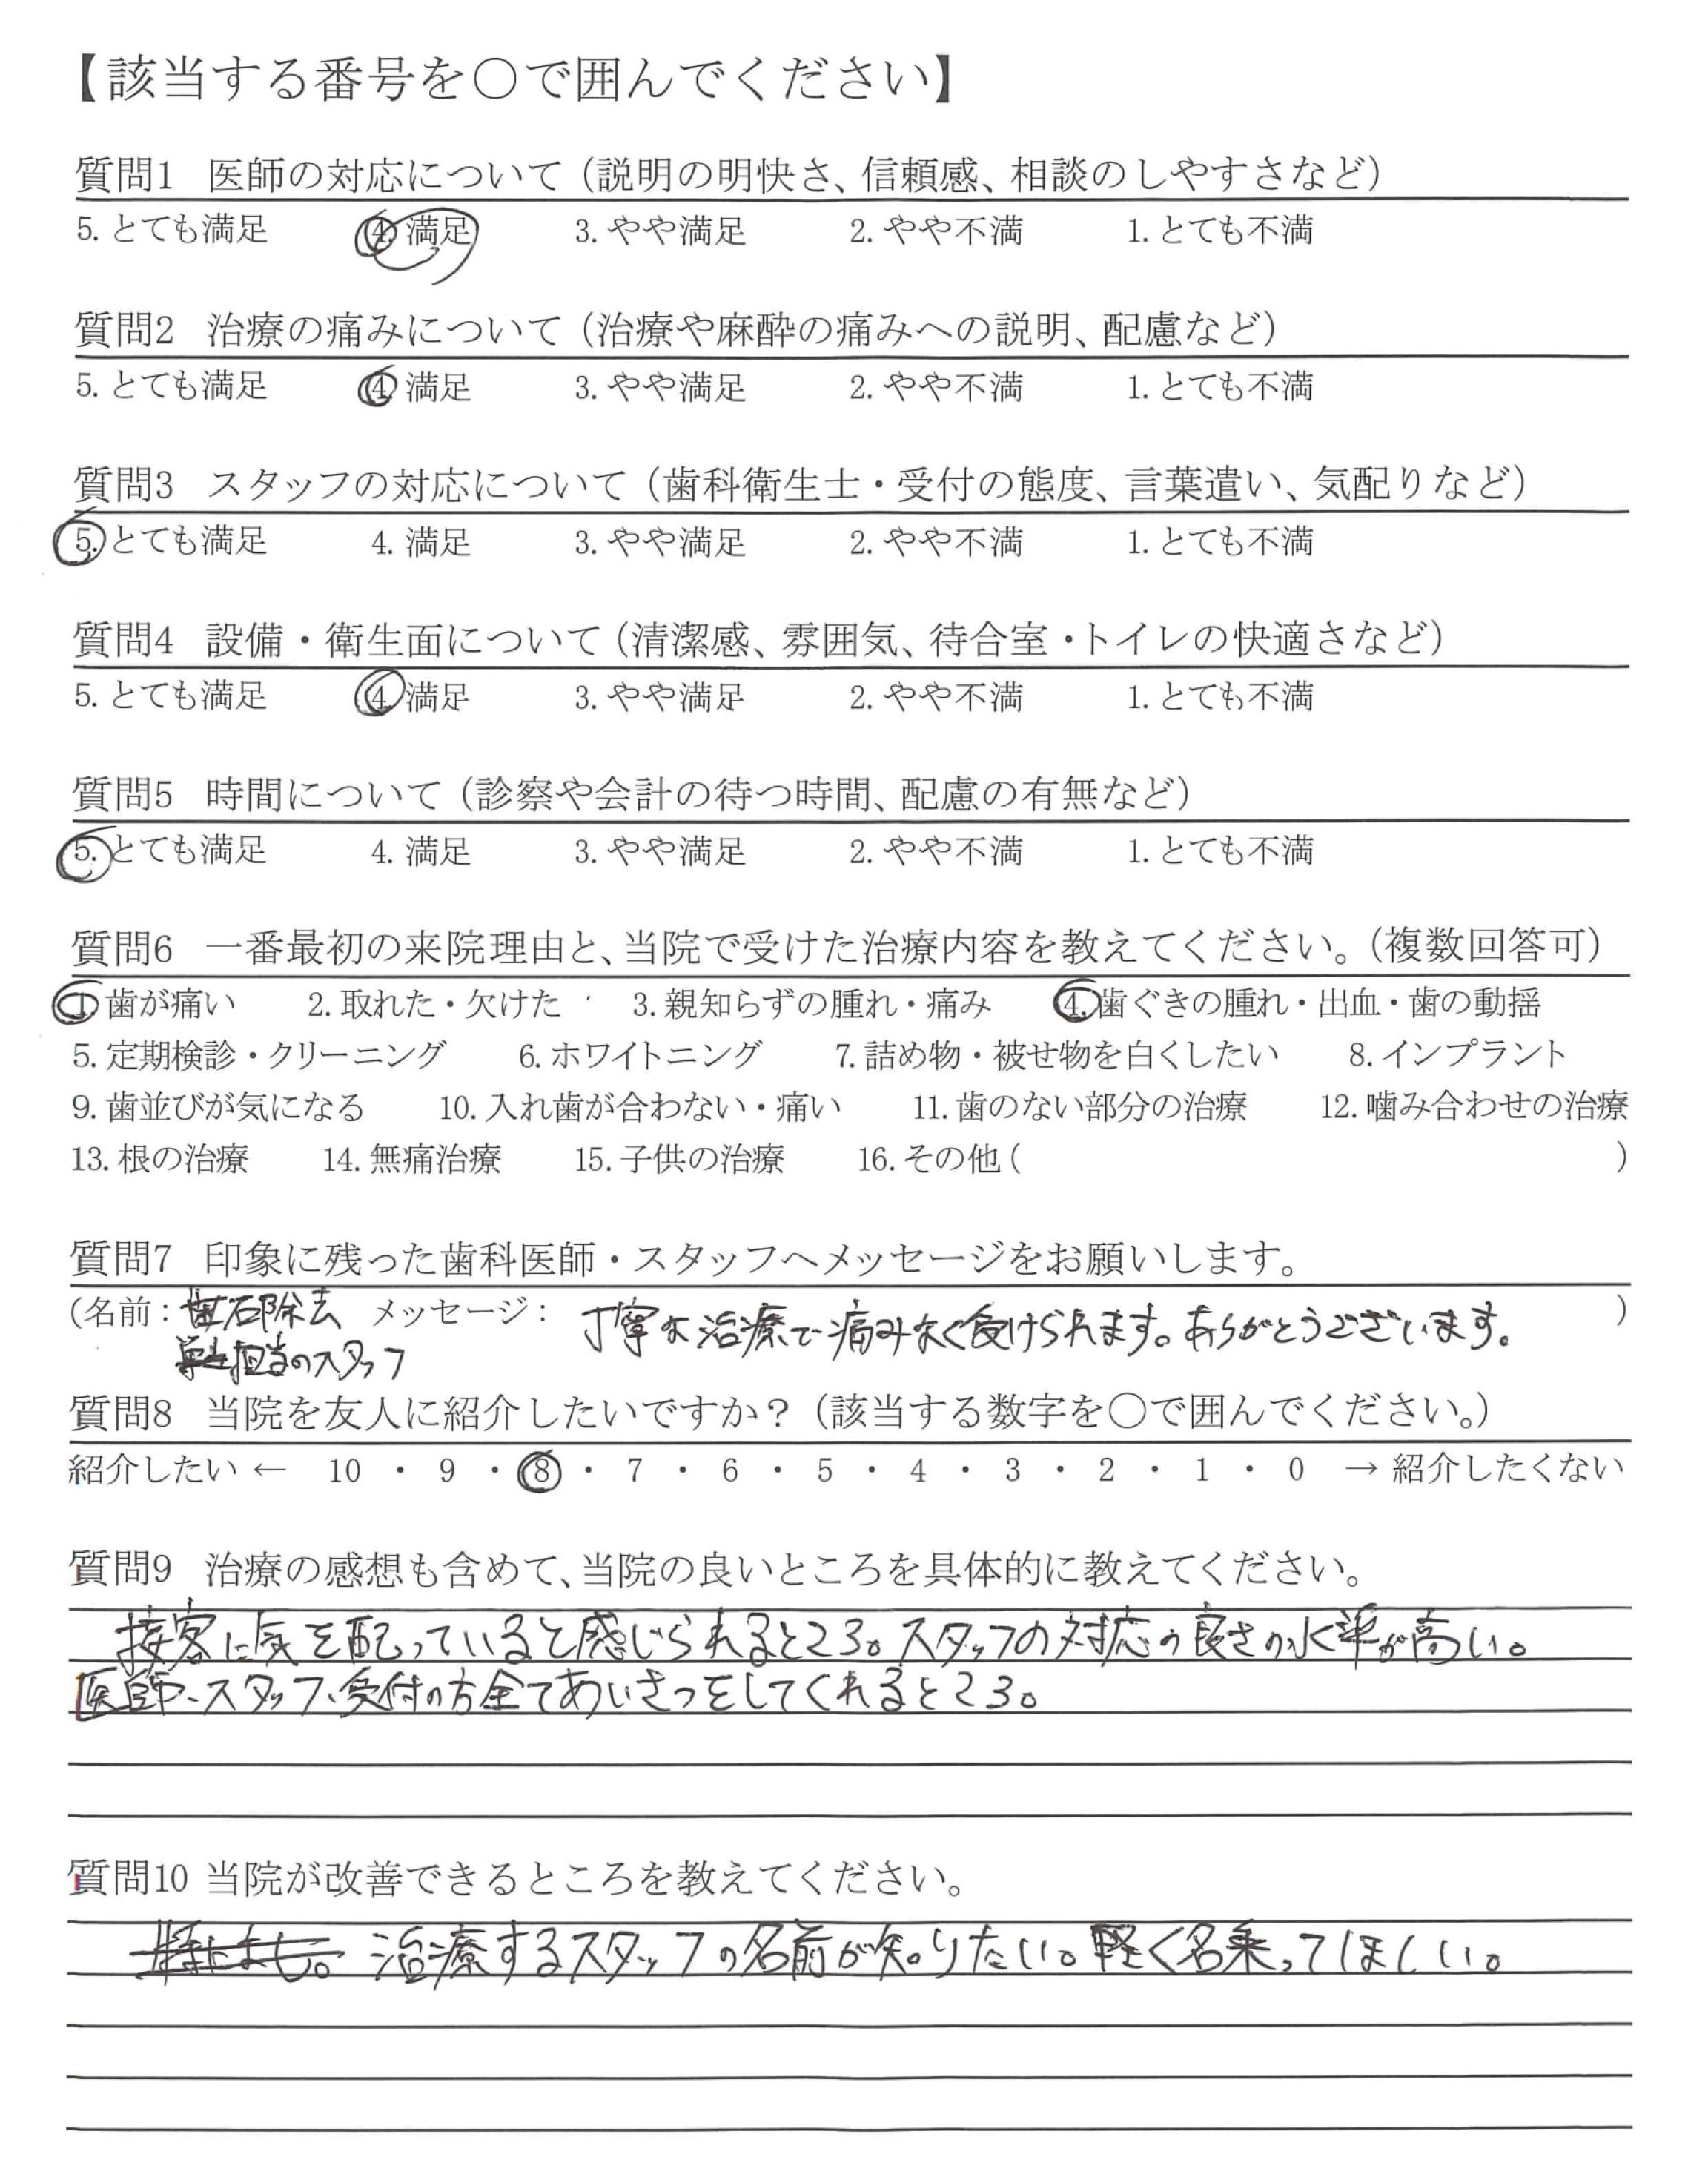 【該当する番号を○で囲んでください】
質問1 医師の対応について（説明の明快さ、信頼感、相談のしやすさなど）
5. とても満足 4. 満足 3. やや満足 2. やや不満 1. とても不満
質問2 治療の痛みについて（治療や麻酔の痛みへの説明、配慮など）
5. とても満足 4. 満足 3. やや満足 2. やや不満 1. とても不満
質問3 スタッフの対応について（歯科衛生士・受付の態度、言葉遣い、気配りなど）
5. とても満足 4. 満足 3. やや満足 2. やや不満 1. とても不満
質問4 設備・衛生面について（清潔感、雰囲気、待合室・トイレの快適さなど）
5. とても満足 4. 満足 3. やや満足 2. やや不満 1. とても不満
質問5 時間について（診察や会計の待つ時間、配慮の有無など）
5. とても満足 4. 満足 3. やや満足 2. やや不満 1. とても不満
質問6 一番最初の来院理由と、当院で受けた治療内容を教えてください。（複数回答可）
1. 歯が痛い 2. 取れた・欠けた 3. 親知らずの腫れ・痛み 4. 歯ぐきの腫れ・出血・歯の動揺
5. 定期検診・クリーニング 6. ホワイトニング 7. 詰め物・被せ物を白くしたい 8. インプラント
9. 歯並びが気になる 10. 入れ歯が合わない・痛い 11. 歯のない部分の治療 12. 噛み合わせの治療
13. 根の治療 14. 無痛治療 15. 子供の治療 16. その他（ ）
質問7 印象に残った歯科医師・スタッフへメッセージをお願いします。
（名前：歯石除去 メッセージ： 丁寧な治療で痛みなく受けられます。ありがとうございます。 ）
担当のスタッフ
質問8 当院を友人に紹介したいですか？（該当する数字を○で囲んでください。）
紹介したい ← 10 ・ 9 ・ 8 ・ 7 ・ 6 ・ 5 ・ 4 ・ 3 ・ 2 ・ 1 ・ 0 → 紹介したくない
質問9 治療の感想も含めて、当院の良いところを具体的に教えてください。
接客に気を配っていると感じられるところ。スタッフの対応の良さの水準が高い。
医師、スタッフ、受付の方全てあいさつをしてくれるところ。
質問10 当院が改善できるところを教えてください。
治療するスタッフの名前が知りたい。軽く名乗ってほしい。